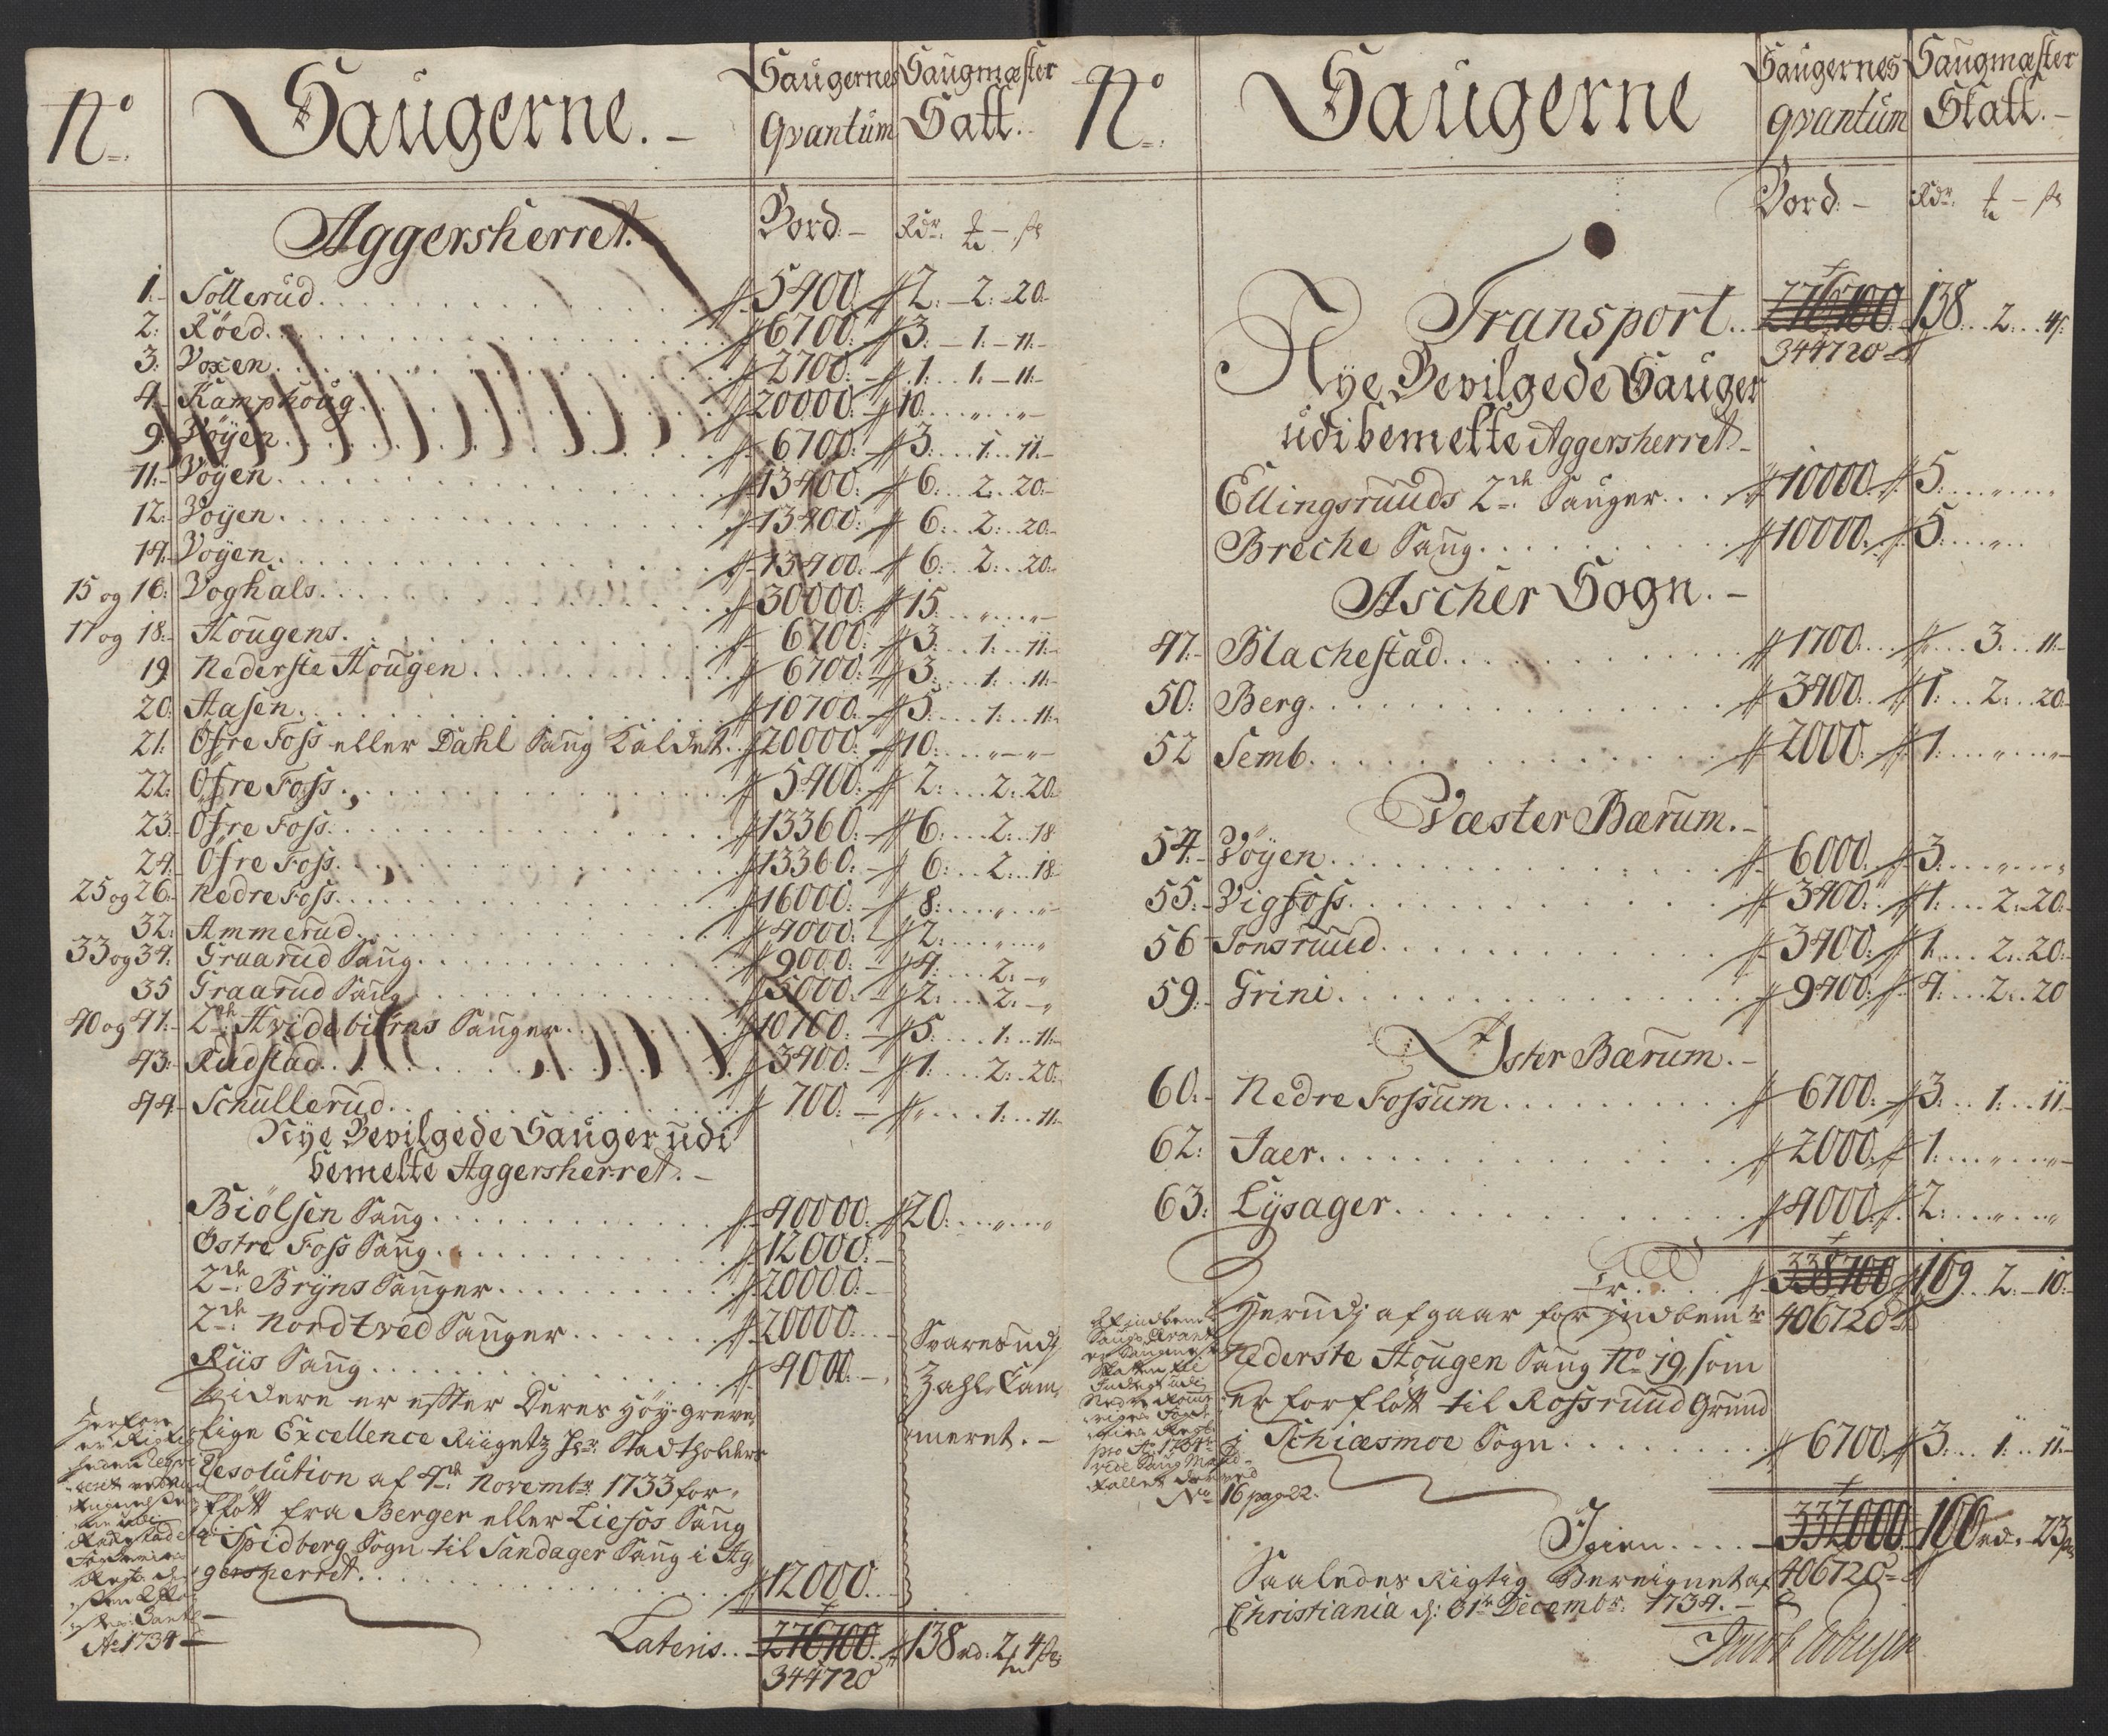 No. Saugerne. - Saugernes Qvantum Saugmæster Satt. -
Aggersherret. - Bord. - Rdr. ₰ - ß
1. Sollerud. 5400 2. 2. 20
2. Röed. 6700 3. 1. 11
3. Voxen. 2700 1. 1. 11
4. Kamphoug. 20000 10. " "
9. Vöyen. 6700 3. 1. 11
11. Vöyen. 13400 6. 2. 20
12. Voyen. 13400 6. 2. 20
14. Voyen. 13400 6. 2. 20
15 og 16. Voghals. 30000 15. " "
17 og 18. Hougens. 6700 3. 1. 11
19. Nederste Hougen. 6700 3. 1. 11
20. Aasen. 10700 5. 1. 11
21. Öfre Foss eller Dahl Saug Kaldet. 20000 10. " "
22. Öfre Foss. 5400 2. 2. 20
23. Öfre Foss. 13360 6. 2. 18
24. Öfre Foss. 13360 6. 2. 18
25 og 26. Nedre Foss. 16000 8. " "
32. Ammerud. 4000 2. " "
33 og 34. Graarud Saug. 9000 4. 2. "
35 Graarud Saug. 5000 2. 2. "
40 og 41. 2de Hvidebiörns Sauger. 10700 5. 1. 11
43. Rudstad. 3400 1. 2. 20
44. Schullerud. 700 " 1. 11
Nye Bevilgede Sauger udi
bemelte Aggersherret. -
Biölsen Saug. 40000 20. " "
Östre Foss Saug. 12000
2de Bryns Sauger. 20000
2de Nordtved Sauger. 20000
Riis Saug. 4000
Svares udj
Zahl-Cam-
meret. -
Videre er effter Deres Höy-Greve-
lige Excellence Riigetz Hr Stadtholders
Resolution af 4de Novembr 1733 for-
flött fra Berger eller Liefos Saug
i Spidberg Sogn til Sandager Saug i Ag-
gersherret. 12000
Ao 1734
Lateris. 276700 138 rd. 2 ₰ 4 ß
344720
No. Saugerne Saugernes qvantum Saugmæster Skatt. -
Bord. - Rdr. ₰ - ß
Transport. 276700 138. 2. 4
344720
Nye Bevilgede Sauger
udi bemelte Aggersherret -
Ellingsruuds 2de Sauger. 10000 5. " "
Breche Saug. 10000 5. "
Ascher Sogn. -
47. Blachestad. 1700 " 3. 11
50. Berg. 3400 1. 2. 20
52 Semb. 2000 1. " "
Væster Bærum. -
54. Vöyen. 6000 3. " "
55. Vigfoss. 3400 1. 2. 20
56 Jonsruud. 3400 1. 2. 20
59. Grini. 9400 4. 2. 20
Öster Bærum. -
60. Nedre Fossum. 6700 3. 1. 11
62. Jaer. 2000 1. " "
63. Lysager. 4000 2. " "
Er. 338700 169. 2. 10
Herudj afgaar for Indbemte 406720
Nederste Hougen Saug No 19, som
er forflött til Rossruud Grund
i Schiæsmoe Sogn. 6700 3. 1. 11
No 16 pag 22.
Igien. 332000 166 rd. 23 ß
Saaledes Rigtig Bereignet af 406720
Christiania d: 31te Decembr. 1734. -